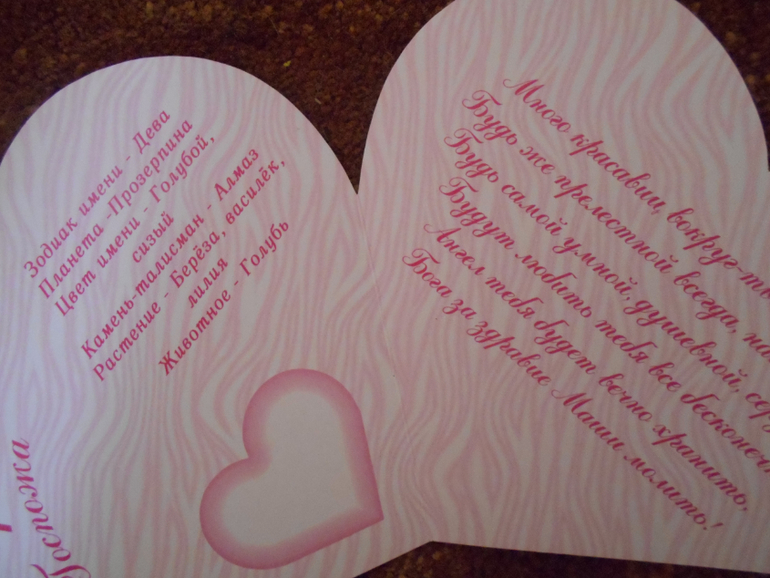 Зодиак имени - Дева
Планета -Прозерпина
Цвет имени - Голубой,
сизый
Камень-талисман - Алмаз
Растение - Берёза, василёк,
лилия
Животное - Голубь
Госпожа
Много красавиц вокруг-
Будь же прелестной всегда,
Будь самой умной, душевной,
Будут любить тебя все
Ангел тебя будет вечно хранить,
Боги за здравие Маши молить!